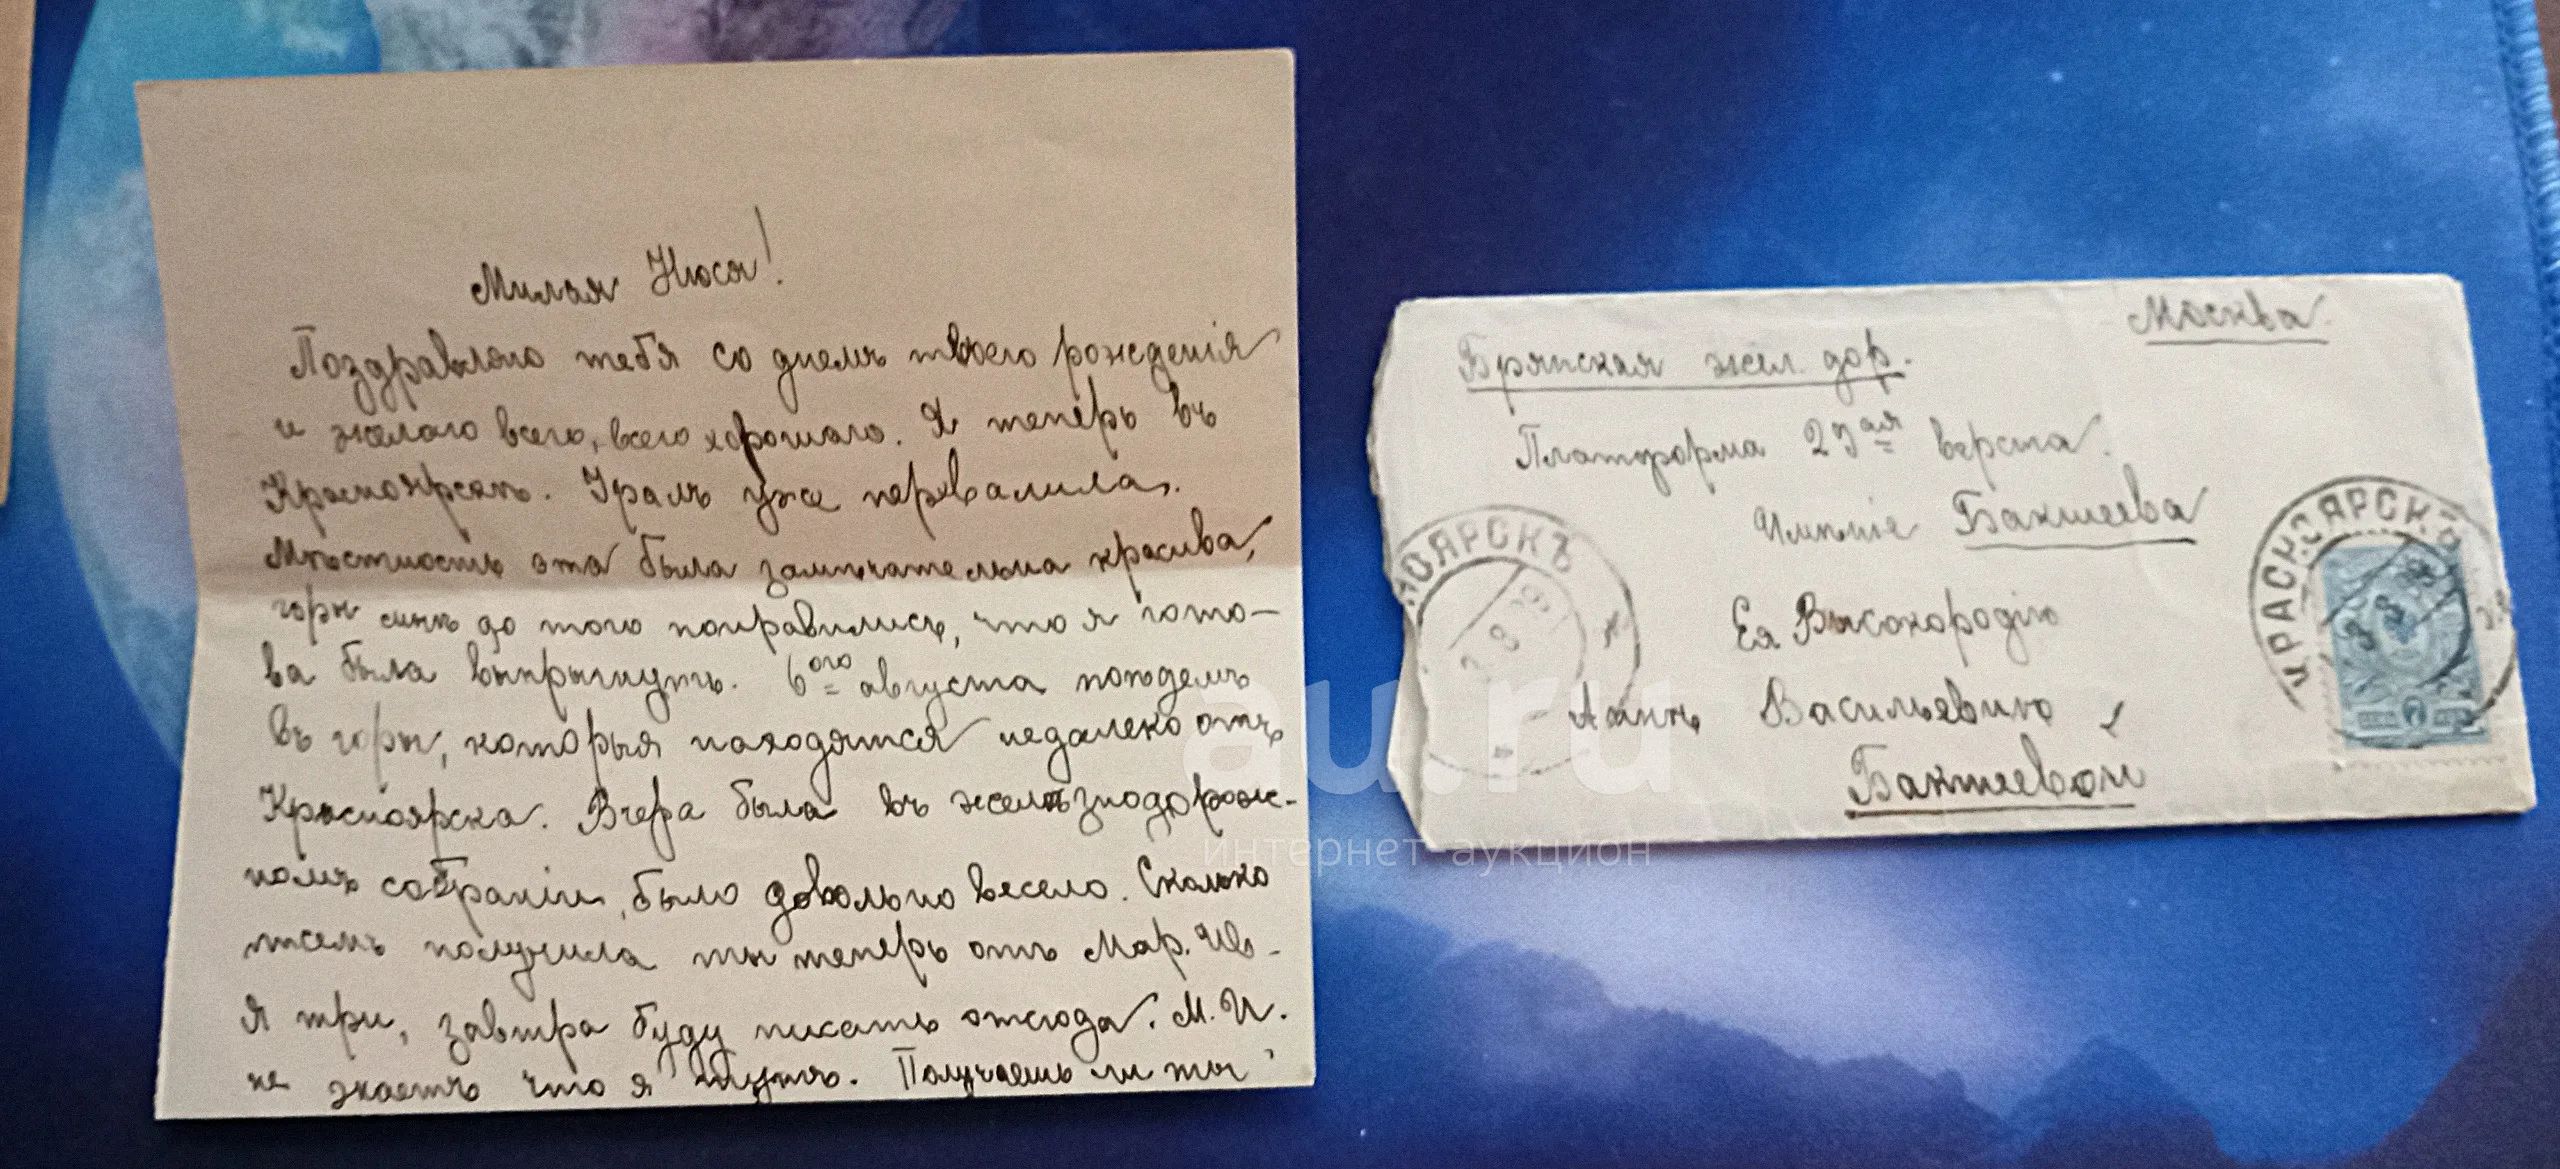 Милая Нюся!
Поздравляю тебя со днемъ твоего рожденія
и желаю всего, всего хорошаго. Я теперь въ
Красноярскѣ. Уралъ уже перевалила.
Мѣстность эта была замѣчательна красива,
горы мнѣ до того понравились, что я гото-
ва была выпрыгнуть. 6ого августа пойдемъ
въ горы, которыя находятся недалеко отъ
Красноярска. Вчера была въ желѣзнодорож-
номъ собраніи, было довольно весело. Сколько
писемъ получила ты теперь отъ Мар. Ив.
Я три, завтра буду писать отсюда. М. И.
не знаетъ что я тутъ. Получаешь ли ты
Москва.
Брянская жел. дор.
Платформа 23ая верста.
Имѣніе Бакшеева
Ея Высокородію
Аннѣ Васильевнѣ
Бакшеевой
КРАСНОЯРСКЪ
НОЯРСКЪ
7
au.ru
интернет-аукцион